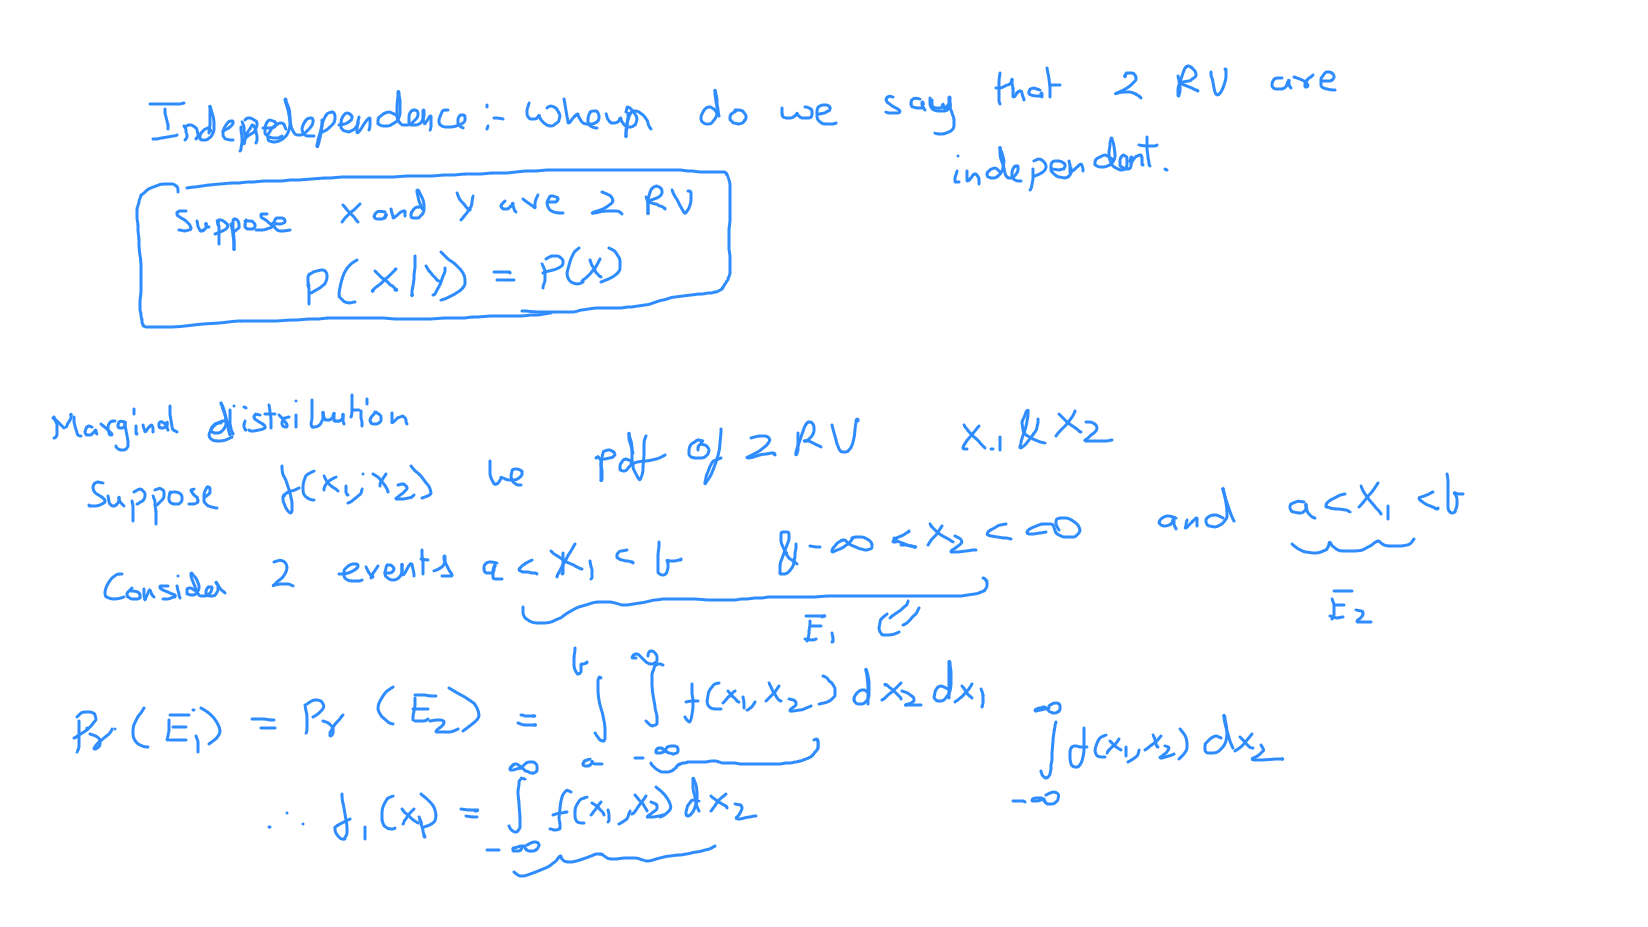 Indepedependence :- When do we say that 2 RV are
independent.
Suppose X and Y are 2 RV
P(X|Y) = P(X)
Marginal distribution
Suppose f(x₁, x₂) be pdf of 2 RV X₁ & X₂
Consider 2 events a < X₁ < b & -∞ < X₂ < ∞ and a < X₁ < b
E₁ E₂
Pr(E₁) = Pr(E₂) = ∫_a^b ∫_{-∞}^∞ f(x₁, x₂) dx₂ dx₁
∫_{-∞}^∞ f(x₁, x₂) dx₂
∴ f₁(x₁) = ∫_{-∞}^∞ f(x₁, x₂) dx₂